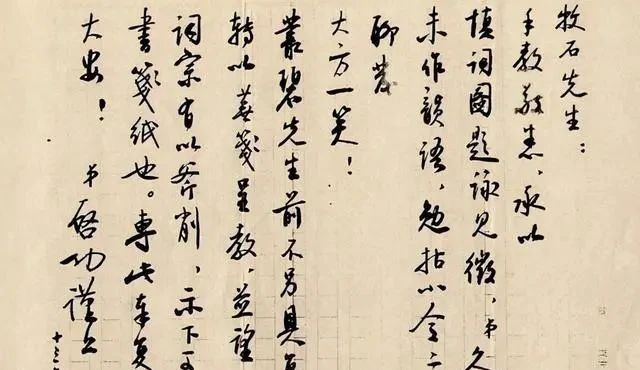 牧石先生：
手教敬悉，承以
填词图题咏见徵，弟久
未作韵语，勉拈小令二
聊发
大方一笑！
丛碧先生前不另具
转以芜笺呈教，並望
词宗有以斧削，示下
书笺纸也。专此奉复
大安！
弟 启功谨上
十三